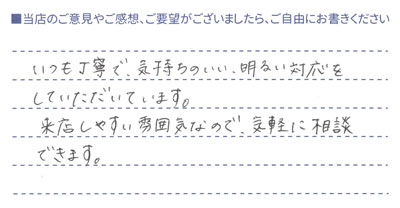 ■当店のご意見やご感想、ご要望がございましたら、ご自由にお書きください
いつも丁寧で、気持ちのいい、明るい対応を
していただいています。
来店しやすい雰囲気なので、気軽に相談
できます。